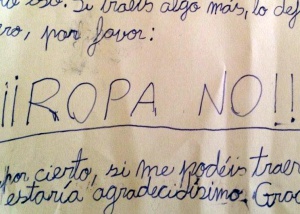 eso. Si traéis algo más, lo de
por favor:
¡¡ROPA NO!!
por cierto, si me podéis traer
estaría agradecidísimo. Grac